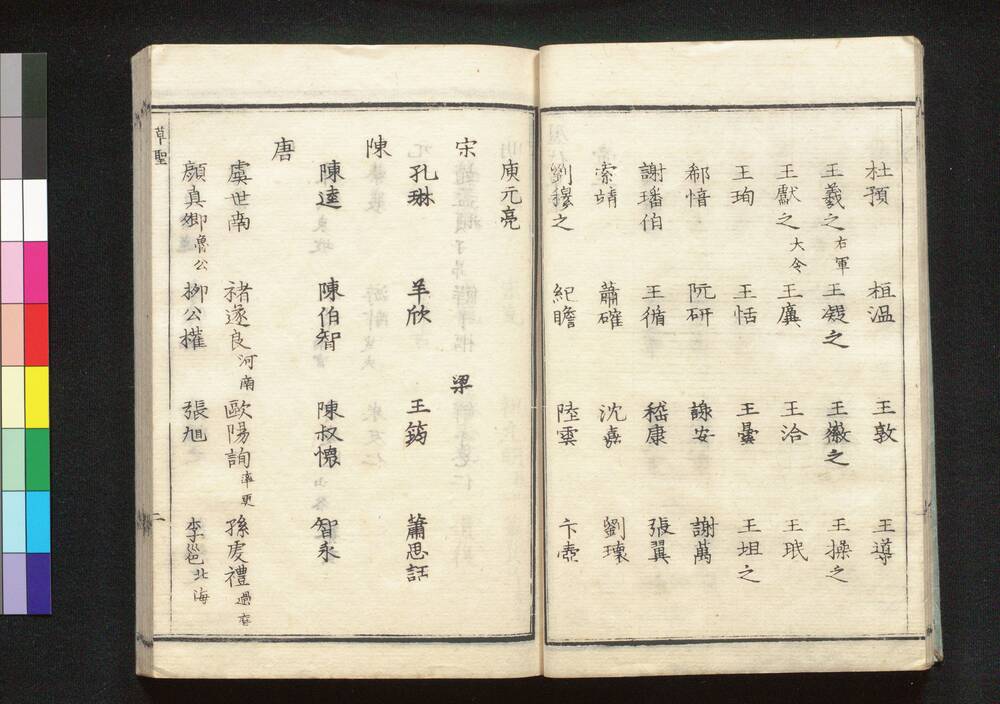 杜預 桓溫 王敦 王導
王羲之右軍 王凝之 王徽之 王操之
王獻之大令 王廙 王洽 王珉
王珣 王恬 王曇 王坦之
郗愔 阮研 謝安 謝萬
謝璠伯 王循 嵇康 張翼
索靖 蕭確 沈嘉 劉瓌
劉穆之 紀瞻 陸雲 卞壺
庾元亮
宋
孔琳 羊欣 梁 王筠 蕭思話
陳
陳逵 陳伯智 陳叔懷 智永
唐
虞世南 褚遂良河南 歐陽詢率更 孫虔禮過庭
顏真卿魯公 柳公權 張旭 李邕北海
草聖
二